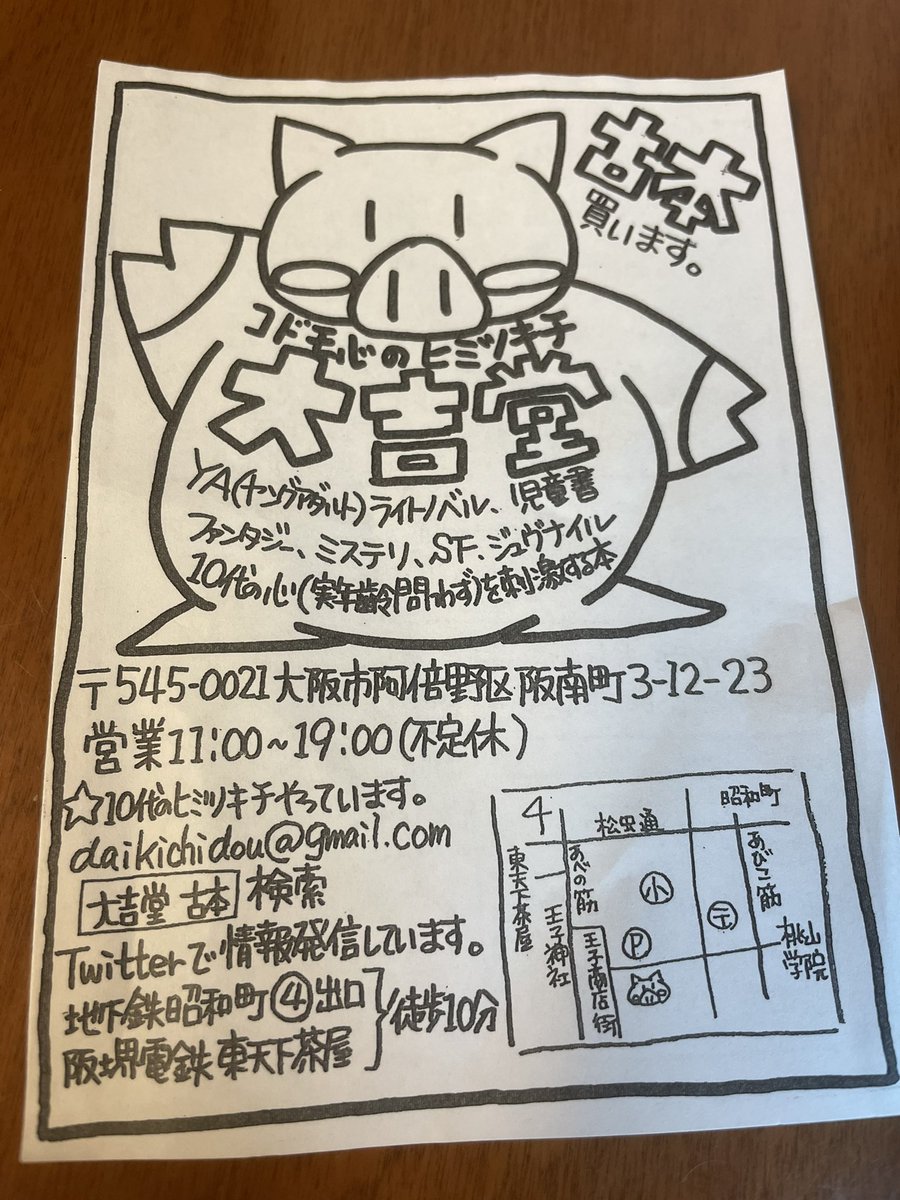 古本
買います。
コドモ心のヒミツキチ
大吉堂
YA(ヤングアダルト)ライトノベル、児童書
ファンタジー、ミステリ、SF、ジュヴナイル
10代の心(実年齢問わず)を刺激する本
〒545-0021大阪市阿倍野区阪南町3-12-23
営業11:00~19:00(不定休)
☆10代のヒミツキチやっています。
daikichidou@gmail.com
大吉堂 古本 検索
Twitterで情報発信しています。
地下鉄昭和町④出口
阪堺電鉄東天下茶屋
徒歩10分
4
松虫通
昭和町
東天下茶屋
王子神社
あべの筋
王子商店街
小
P
〒
あびこ筋
桃山学院